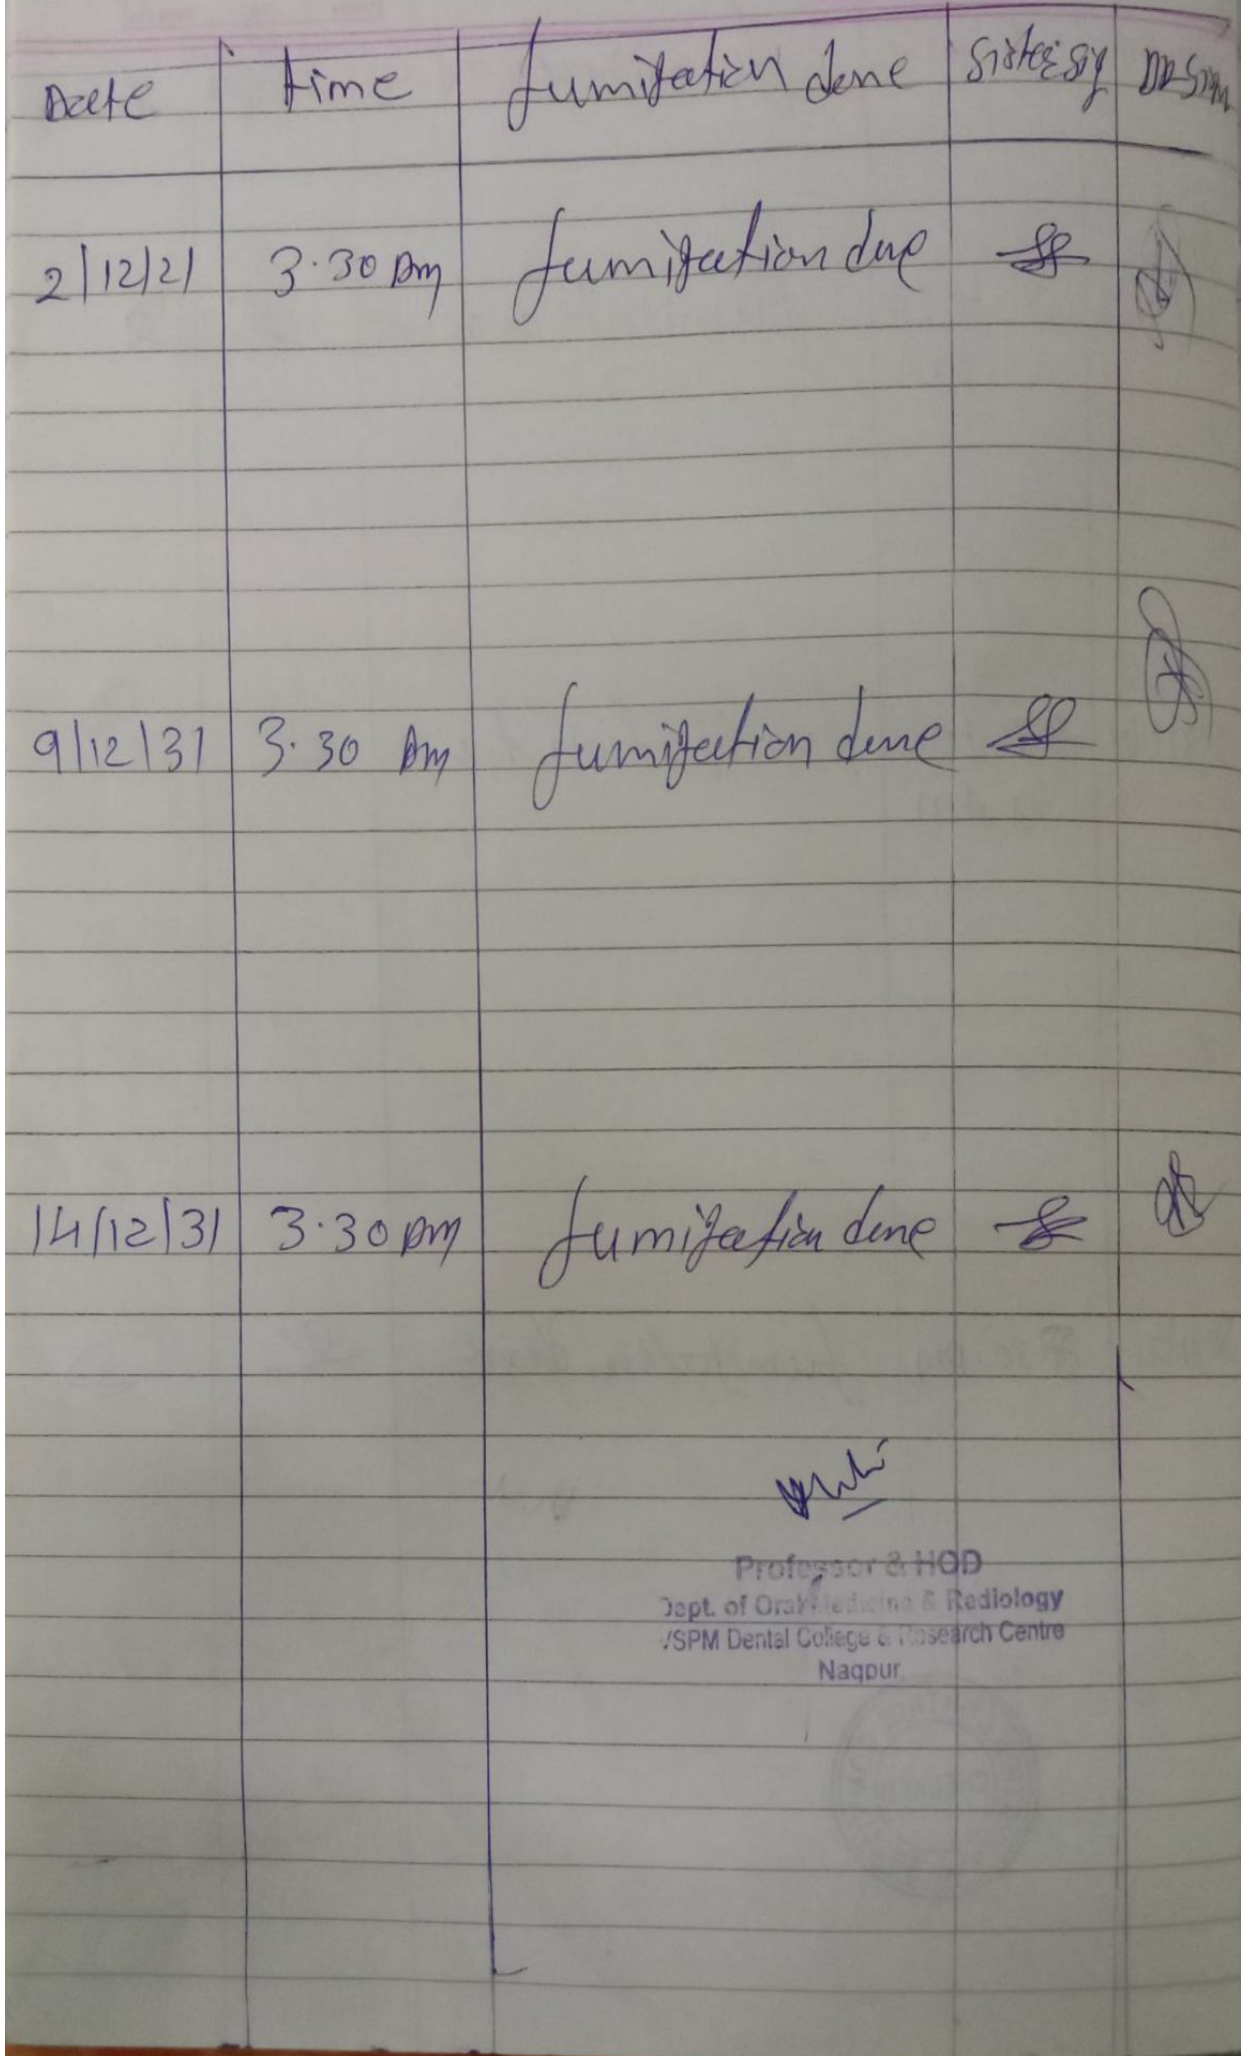 Date time fumigation done Sister sig DR Sign
2/12/21 3.30 pm fumigation done
9/12/31 3.30 pm fumigation done
14/12/31 3.30 pm fumigation done
Professor & HOD
Dept. of Oral Medicine & Radiology
VSPM Dental College & Research Centre
Nagpur.